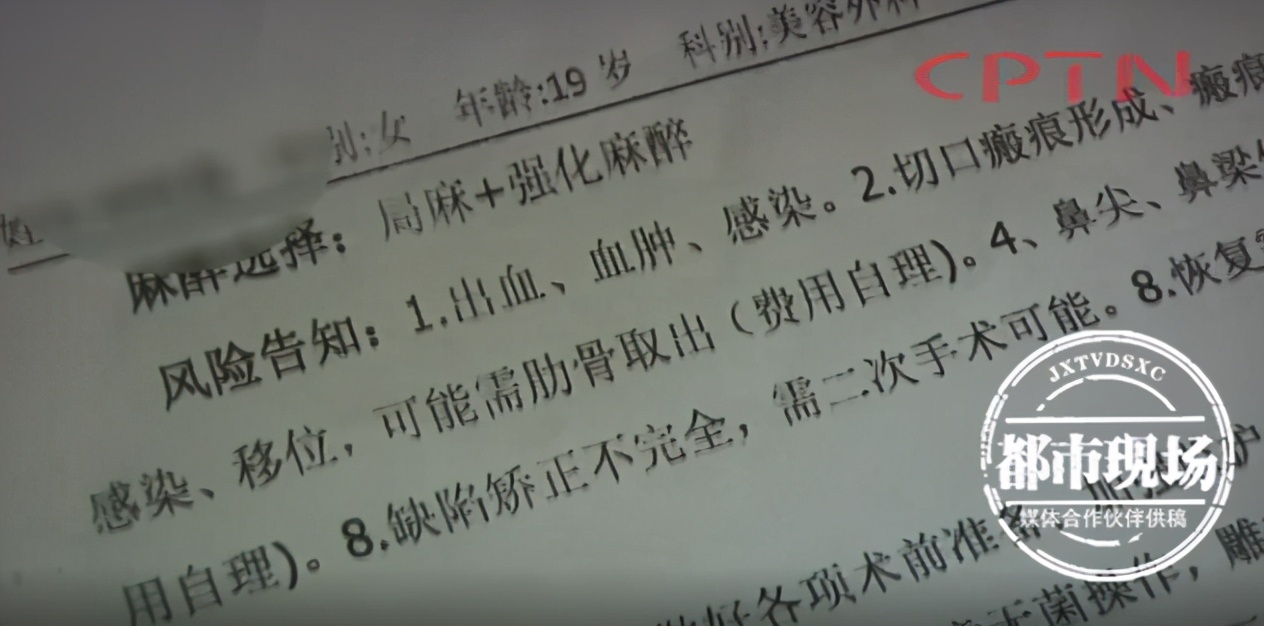 CPTN
姓 别:女 年龄:19岁 科别:美容外科
麻醉选择：局麻+强化麻醉
风险告知：1.出血、血肿、感染。2.切口瘢痕形成、瘢痕
感染、移位，可能需肋骨取出（费用自理)。4、鼻尖、鼻梁
用自理)。8.缺陷矫正不完全，需二次手术可能。8.恢复
做好各项术前准备，
无菌操作，雕
JXTVDSXC
都市现场
媒体合作伙伴供稿